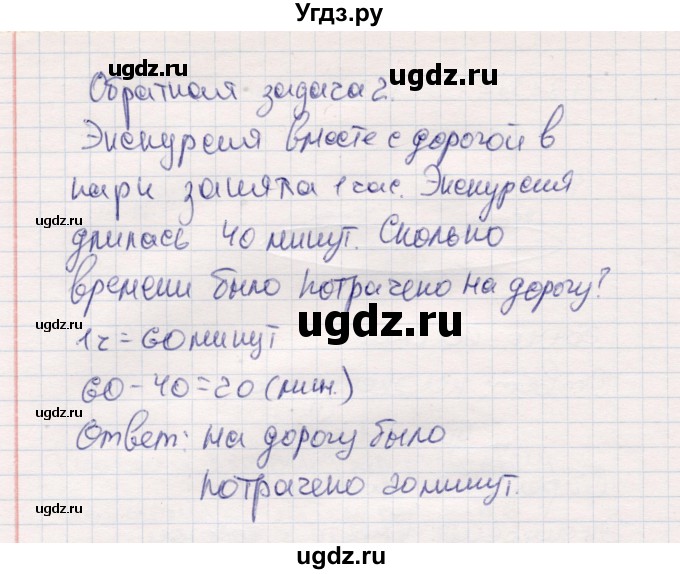 Угдз.ру
ugdz.ru ugdz.ru
Обратная задача 2.
Экскурсия вместе с дорогой в
парк заняла 1 час. Экскурсия
ugdz.ru
длилась 40 минут. Сколько
времени было потрачено на дорогу?
ugdz.ru
1 ч = 60 минут
60 - 40 = 20 (мин.)
ugdz.ru
Ответ: на дорогу было
потрачено 20 минут.
ugdz.ru
ugdz.ru